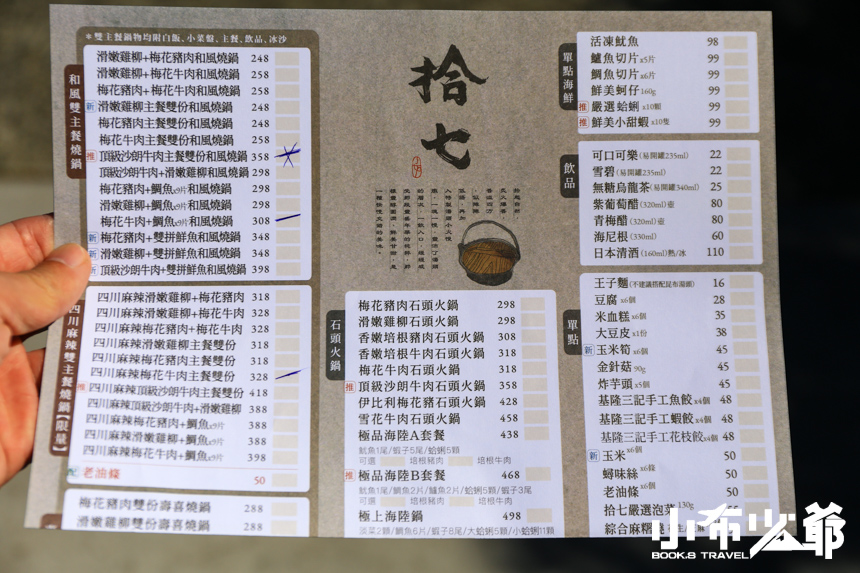 *雙主餐鍋物均附白飯、小菜盤、主餐、飲品、冰沙
和風雙主餐燒鍋
滑嫩雞柳+梅花豬肉和風燒鍋 248
滑嫩雞柳+梅花牛肉和風燒鍋 258
梅花豬肉+梅花牛肉和風燒鍋 258
新 滑嫩雞柳主餐雙份和風燒鍋 248
梅花豬肉主餐雙份和風燒鍋 248
梅花牛肉主餐雙份和風燒鍋 258
推 頂級沙朗牛肉主餐雙份和風燒鍋 358
頂級沙朗牛肉+滑嫩雞柳和風燒鍋 298
梅花豬肉+鯛魚x9片和風燒鍋 298
滑嫩雞柳+鯛魚x9片和風燒鍋 298
梅花牛肉+鯛魚x9片和風燒鍋 308
新 梅花豬肉+雙拼鮮魚和風燒鍋 348
新 滑嫩雞柳+雙拼鮮魚和風燒鍋 348
新 頂級沙朗牛肉+雙拼鮮魚和風燒鍋 398
四川麻辣雙主餐燒鍋【限量】
四川麻辣滑嫩雞柳+梅花豬肉 318
四川麻辣滑嫩雞柳+梅花牛肉 328
四川麻辣梅花豬肉+梅花牛肉 328
四川麻辣滑嫩雞柳主餐雙份 318
四川麻辣梅花豬肉主餐雙份 318
四川麻辣梅花牛肉主餐雙份 328
推 四川麻辣頂級沙朗牛肉主餐雙份 418
四川麻辣頂級沙朗牛肉+滑嫩雞柳 388
四川麻辣梅花豬肉+鯛魚x9片 388
四川麻辣滑嫩雞柳+鯛魚x9片 388
四川麻辣梅花牛肉+鯛魚x9片 398
配 老油條 50
梅花豬肉雙份壽喜燒鍋 288
滑嫩雞柳雙份壽喜燒鍋 288
拾七
石頭火鍋
梅花豬肉石頭火鍋 298
滑嫩雞柳石頭火鍋 298
香嫩培根豬肉石頭火鍋 308
香嫩培根牛肉石頭火鍋 318
梅花牛肉石頭火鍋 318
推 頂級沙朗牛肉石頭火鍋 358
伊比利梅花豬石頭火鍋 428
雪花牛肉石頭火鍋 458
極品海陸A套餐 438
魷魚1尾/蝦子5尾/蛤蜊5顆
可選 培根豬肉 培根牛肉
推 極品海陸B套餐 468
魷魚1尾/鯛魚2片/鱸魚2片/蛤蜊5顆/蝦子3尾
可選 培根豬肉 培根牛肉
極上海陸鍋 498
淡菜2顆/鯛魚6片/蝦子8尾/大蛤蜊5顆/小蛤蜊11顆
單點海鮮
活凍魷魚 98
鱸魚切片x5片 99
鯛魚切片x6片 99
鮮美蚵仔160g 99
推 嚴選蛤蜊x10顆 99
推 鮮美小甜蝦x10隻 99
飲品
可口可樂(易開罐235ml) 22
雪碧(易開罐235ml) 22
無糖烏龍茶(易開罐340ml) 25
紫葡萄醋(320ml)壺 80
青梅醋(320ml)壺 80
海尼根(330ml) 60
日本清酒(160ml)熱/冰 110
單點
王子麵(不建議搭配昆布湯頭) 16
豆腐x6個 28
米血糕x6個 35
大豆皮x1份 38
新 玉米筍x6個 45
金針菇90g 45
炸芋頭x5個 45
基隆三記手工魚餃x4個 48
基隆三記手工蝦餃x4個 48
基隆三記手工花枝餃x4個 48
新 玉米x6個 50
蟳味絲x6條 50
老油條x6個 50
拾七嚴選泡菜130g
綜合麻糬燒
小布少爺
BOOK.S TRAVEL